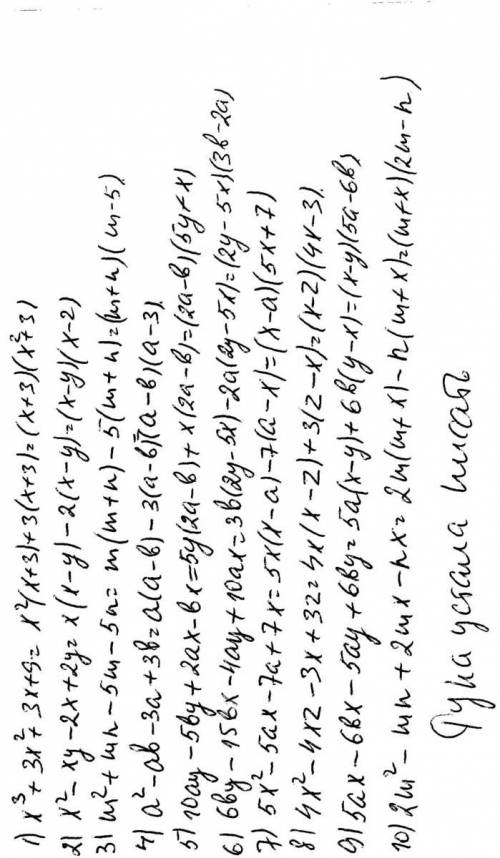 1) x³ + 3x² + 3x+9= x²(x+3)+3(x+3)=(x+3)(x²+3)
2) x² - xy - 2x + 2y = x(x-y) - 2(x-y)=(x-y)(x-2)
3) m² + mn - 5m - 5n = m(m+n) - 5(m+n)=(m+n)(m-5)
4) a² - ab - 3a + 3b = a(a-b) - 3(a-b)=(a-b)(a-3)
5) 10ay - 5by + 2ax - bx = 5y(2a-b) + x(2a-b)=(2a-b)(5y+x)
6) 6by - 15bx - 4ay + 10ax = 3b(2y-5x) - 2a(2y-5x)=(2y-5x)(3b-2a)
7) 5x² - 5ax - 7a + 7x = 5x(x-a) - 7(a-x)=(x-a)(5x+7)
8) 4x² - 4xz - 3x + 3z = 4x(x-z) + 3(z-x)=(x-z)(4x-3)
9) 5ax - 6bx - 5ay + 6by = 5a(x-y) + 6b(y-x)=(x-y)(5a-6b)
10) 2m² - mn + 2mx - nx = 2m(m+x) - n(m+x)=(m+x)(2m-n)
Рука устала писать